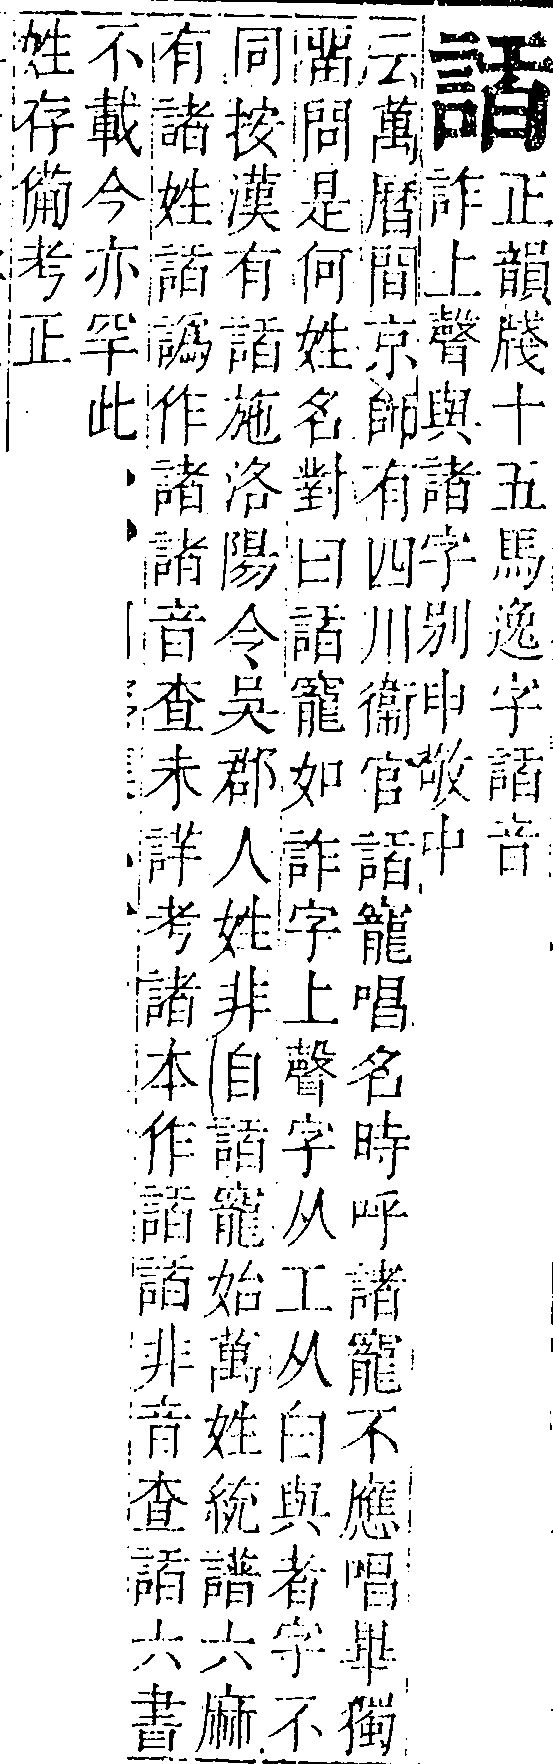 䛽
正韻牋十五馬逸字䛽音
詐上聲與諸字別申敬中
云萬曆間京師有四川衞官䛽寵唱名時呼諸寵不應唱畢獨
留問是何姓名對曰䛽寵如詐字上聲字从工从白與者字不
同按漢有䛽施洛陽令吳郡人姓非自䛽寵始萬姓統譜六麻
有諸姓䛽譌作諸諸音查未詳考諸本作䛽䛽非音查䛽六書
不載今亦罕此
姓存備考正